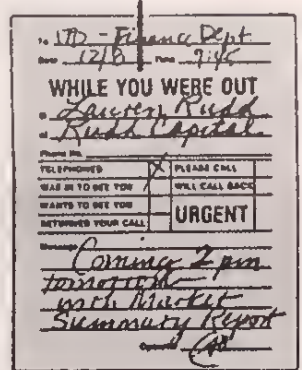 To ITD - Finance Dept
Date 12/8 Time 9:45
WHILE YOU WERE OUT
M Lauren Rudd
of Rudd Capital
Phone No.
TELEPHONED X PLEASE CALL
WAS IN TO SEE YOU WILL CALL BACK
WANTS TO SEE YOU URGENT
RETURNED YOUR CALL
Message Coming 2 pm
tomorrow
with Market
Summary Report
Operator